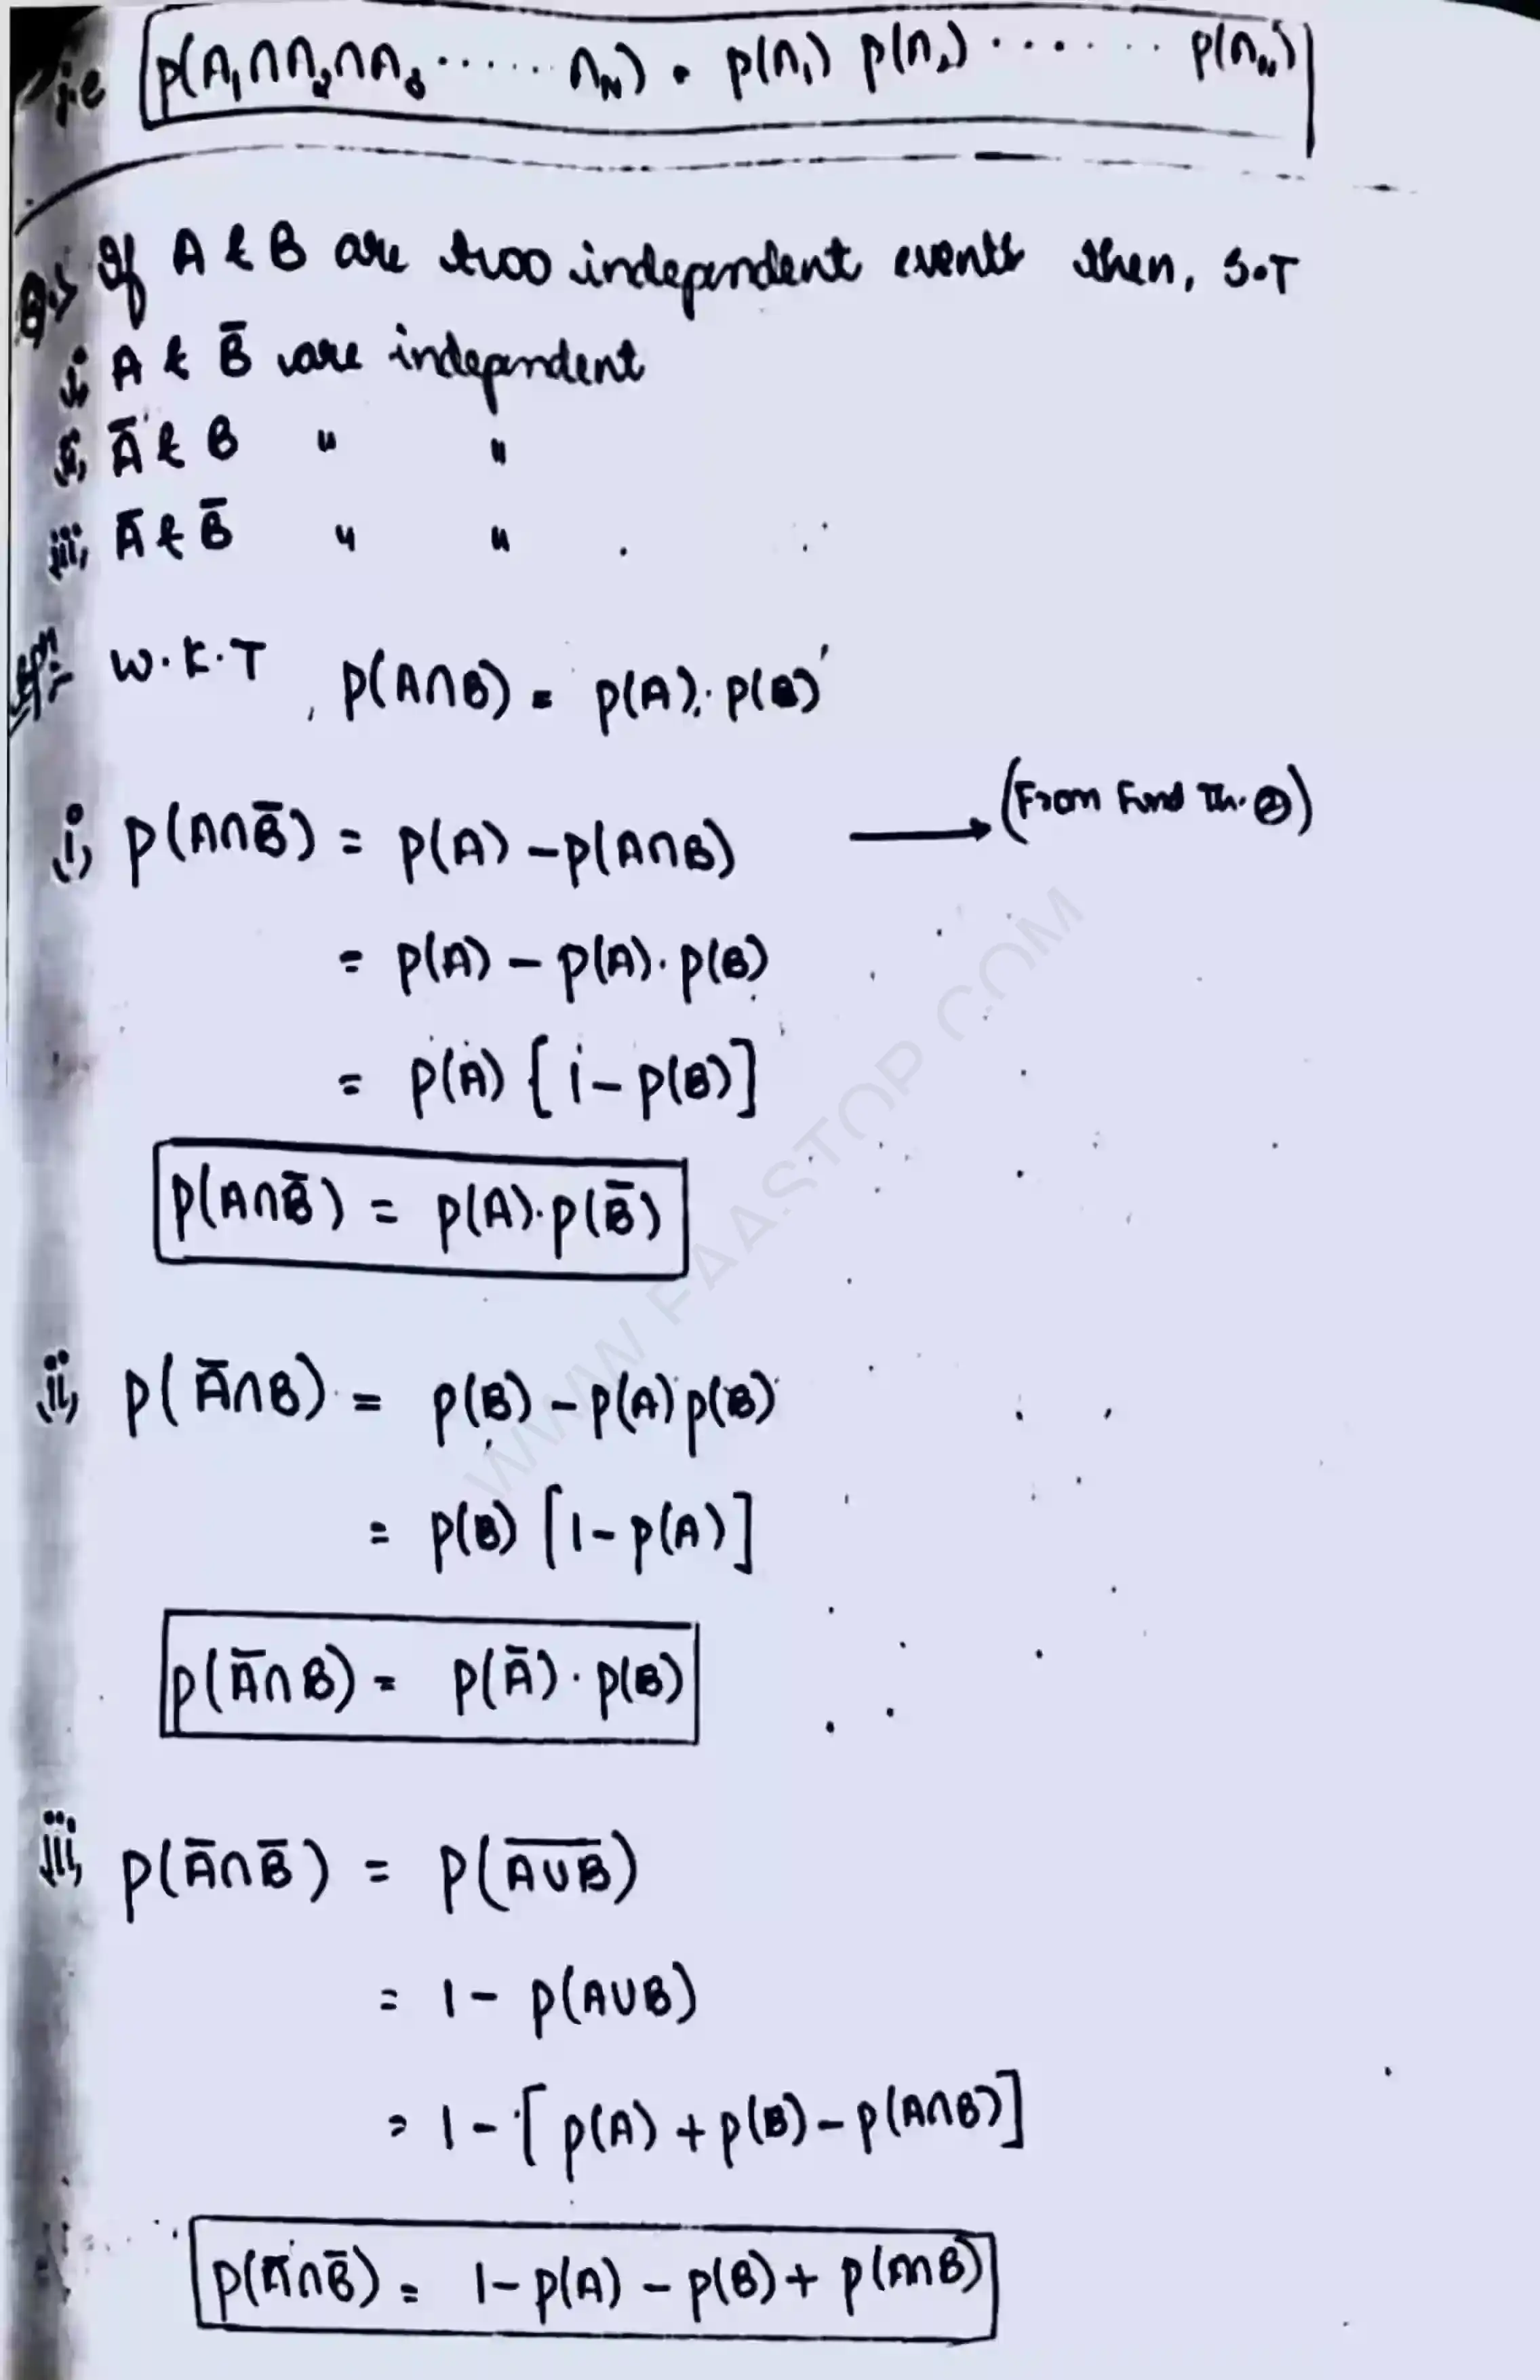 i.e P(A₁∩A₂∩A₃ ...... Aₙ) = P(A₁) P(A₂) ....... P(Aₙ)
Q.> If A & B are two independent events then, S.T
i, A & B̅ are independent
ii, A̅ & B " "
iii, A̅ & B̅ " " .
W.K.T, P(A∩B) = P(A).P(B)
i, P(A∩B̅) = P(A) - P(A∩B) ⟶ (From Fund Th. ②)
= P(A) - P(A).P(B)
= P(A) [1 - P(B)]
P(A∩B̅) = P(A).P(B̅)
ii, P(A̅∩B) = P(B) - P(A)P(B)
= P(B) [1 - P(A)]
P(A̅∩B) = P(A̅).P(B)
iii, P(A̅∩B̅) = P(A̅∪̅B̅)
= 1 - P(A∪B)
= 1 - [P(A) + P(B) - P(A∩B)]
P(A̅∩B̅) = 1 - P(A) - P(B) + P(A∩B)
WWW.FAASTOP.COM